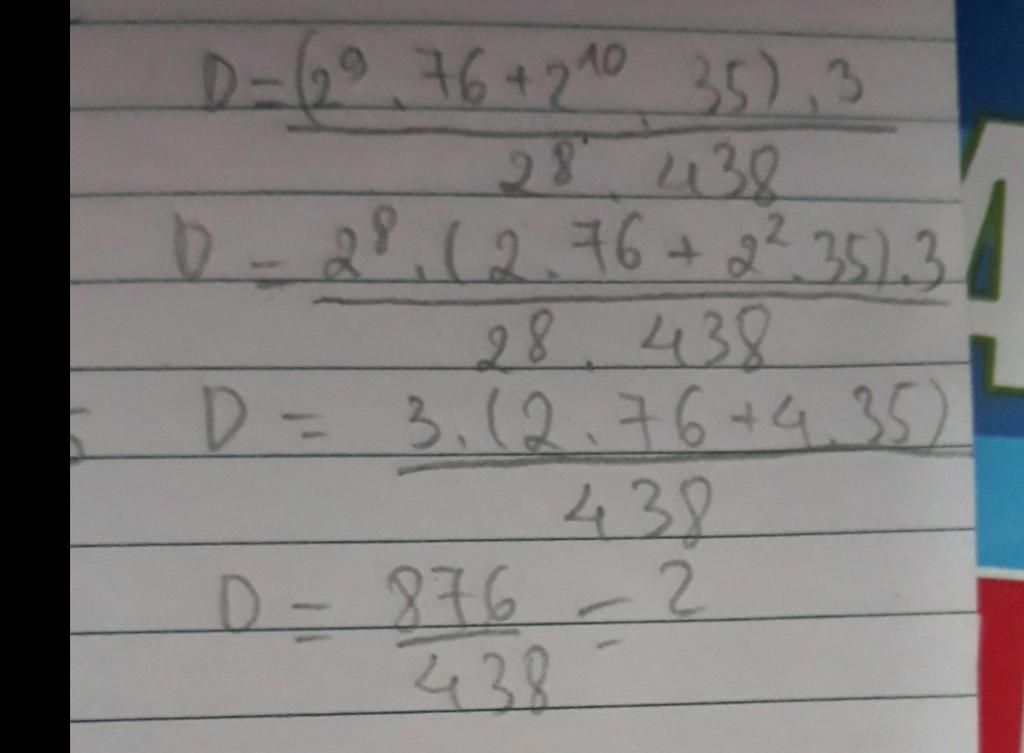 D = (2⁹ . 76 + 2¹⁰ . 35) . 3
2⁸ . 438
D = 2⁸ . (2 . 76 + 2² . 35) . 3
2⁸ . 438
D = 3 . (2 . 76 + 4 . 35)
438
D = 876 = 2
438